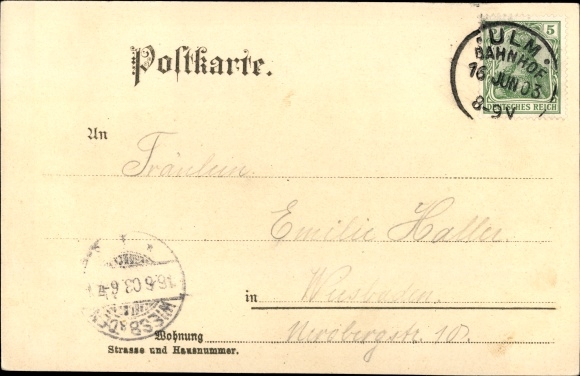 Postkarte.
5
ULM
BAHNHOF
16 JUN 03
8-9V
DEUTSCHES REICH
An
Fräulein
Emilie Haller
in Wiesbaden.
Wohnung Nerobergstr. 10.
Strasse und Hausnummer.
16.6.03.
WIESBADEN